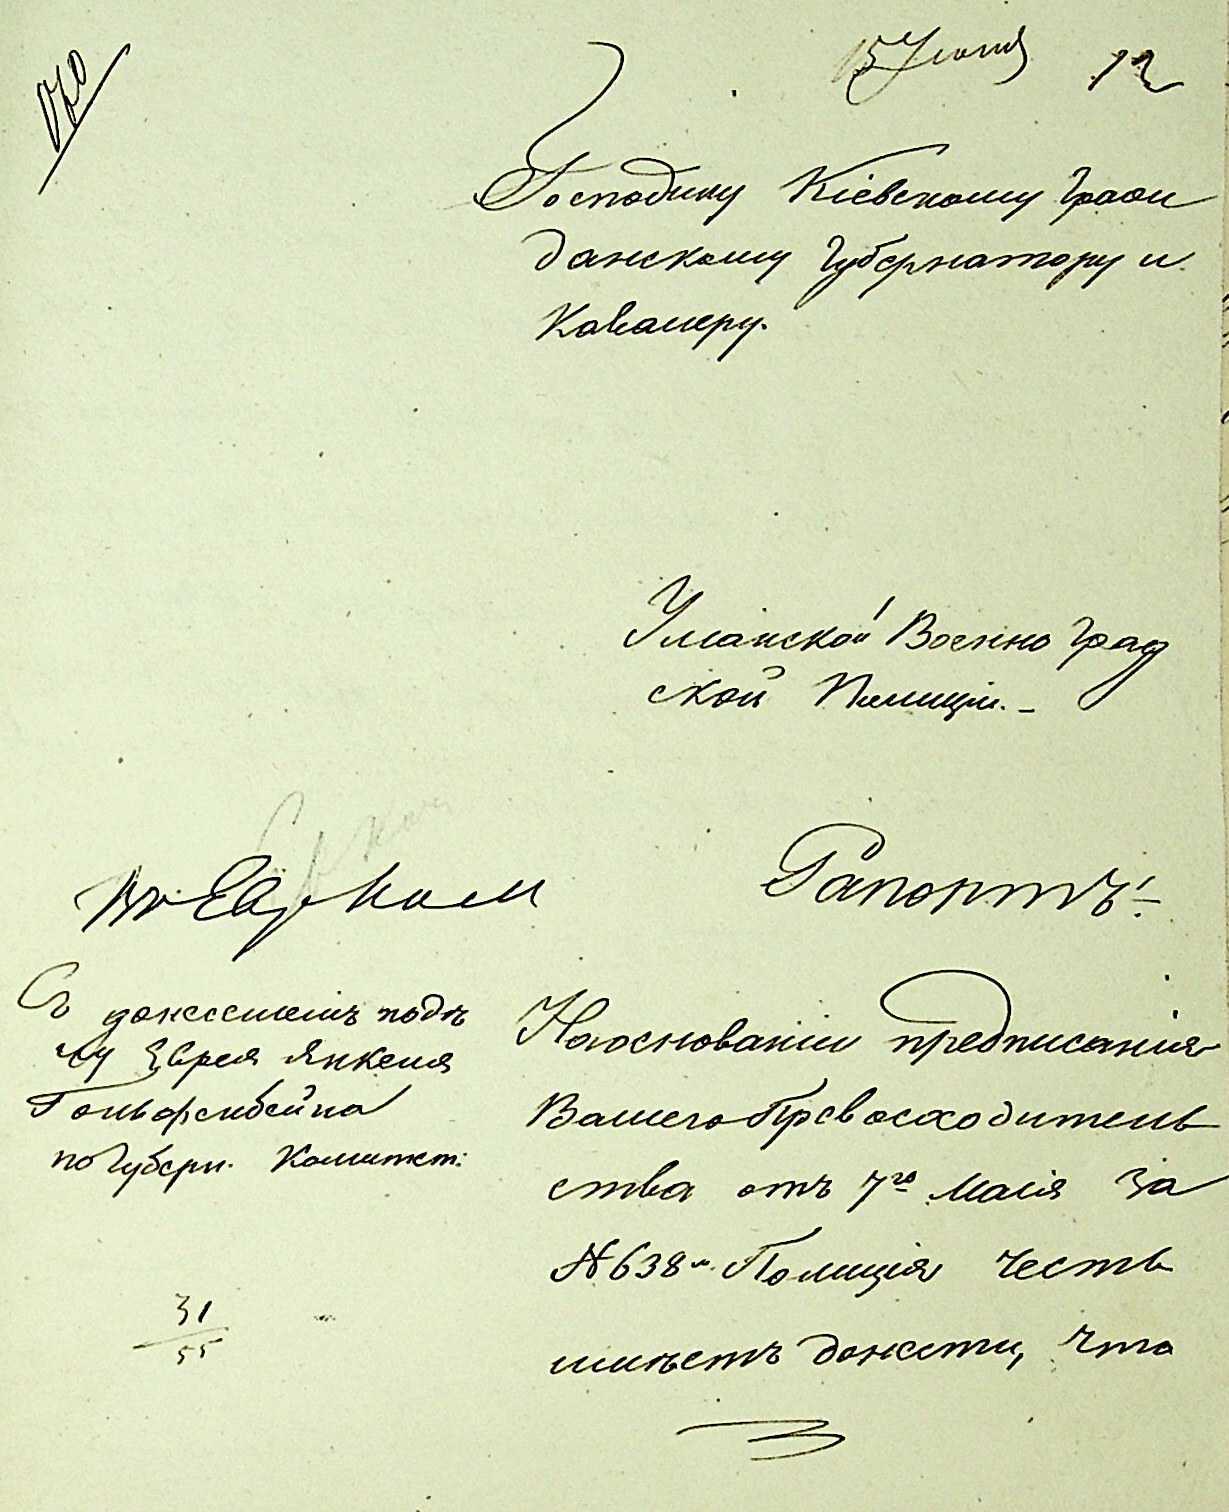 15 Іюня 12
Господину Кіевскому Граж
данскому Губернатору и
Кавалеру.
Уманской Военно Град
ской Полиціи. -
Въ Евр. Ком
Рапортъ!
Съ донесеніемъ подъ
Еврея Янкеля
по Губерн. Комитет:
31
55
На основаніи предписанія
Вашего Превосходитель
ства отъ 7го Маія за
№ 638м Полиція честь
имѣетъ донести, что